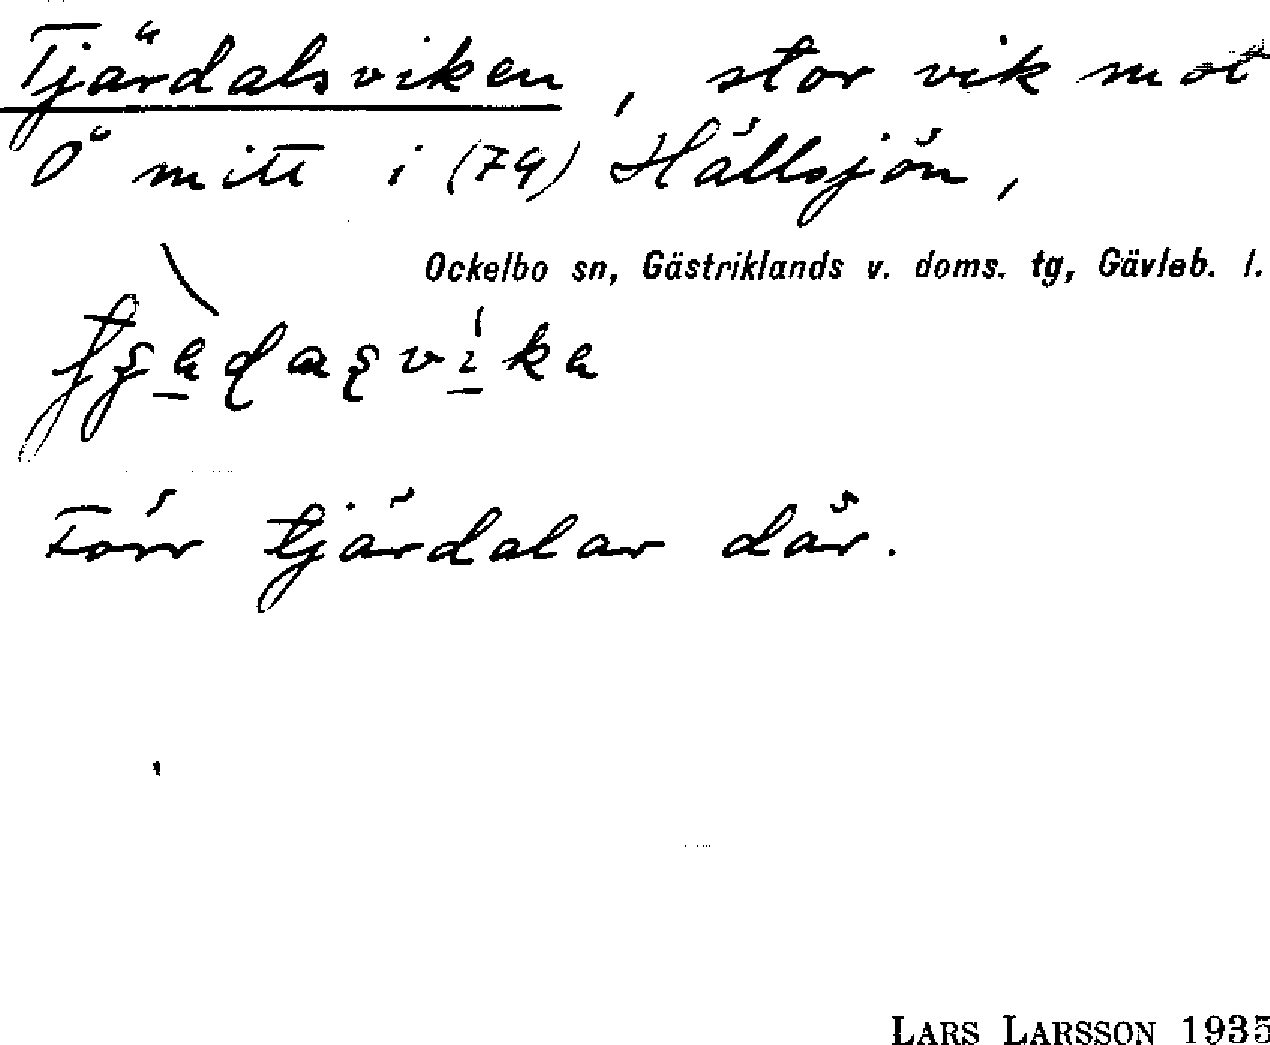 Tjärdalsviken, stor vik mot
Ö mitt i (79) Hällsjön,
Ockelbo sn, Gästriklands v. doms. tg, Gävleb. l.
Förr tjärdalar där.
LARS LARSSON 1935